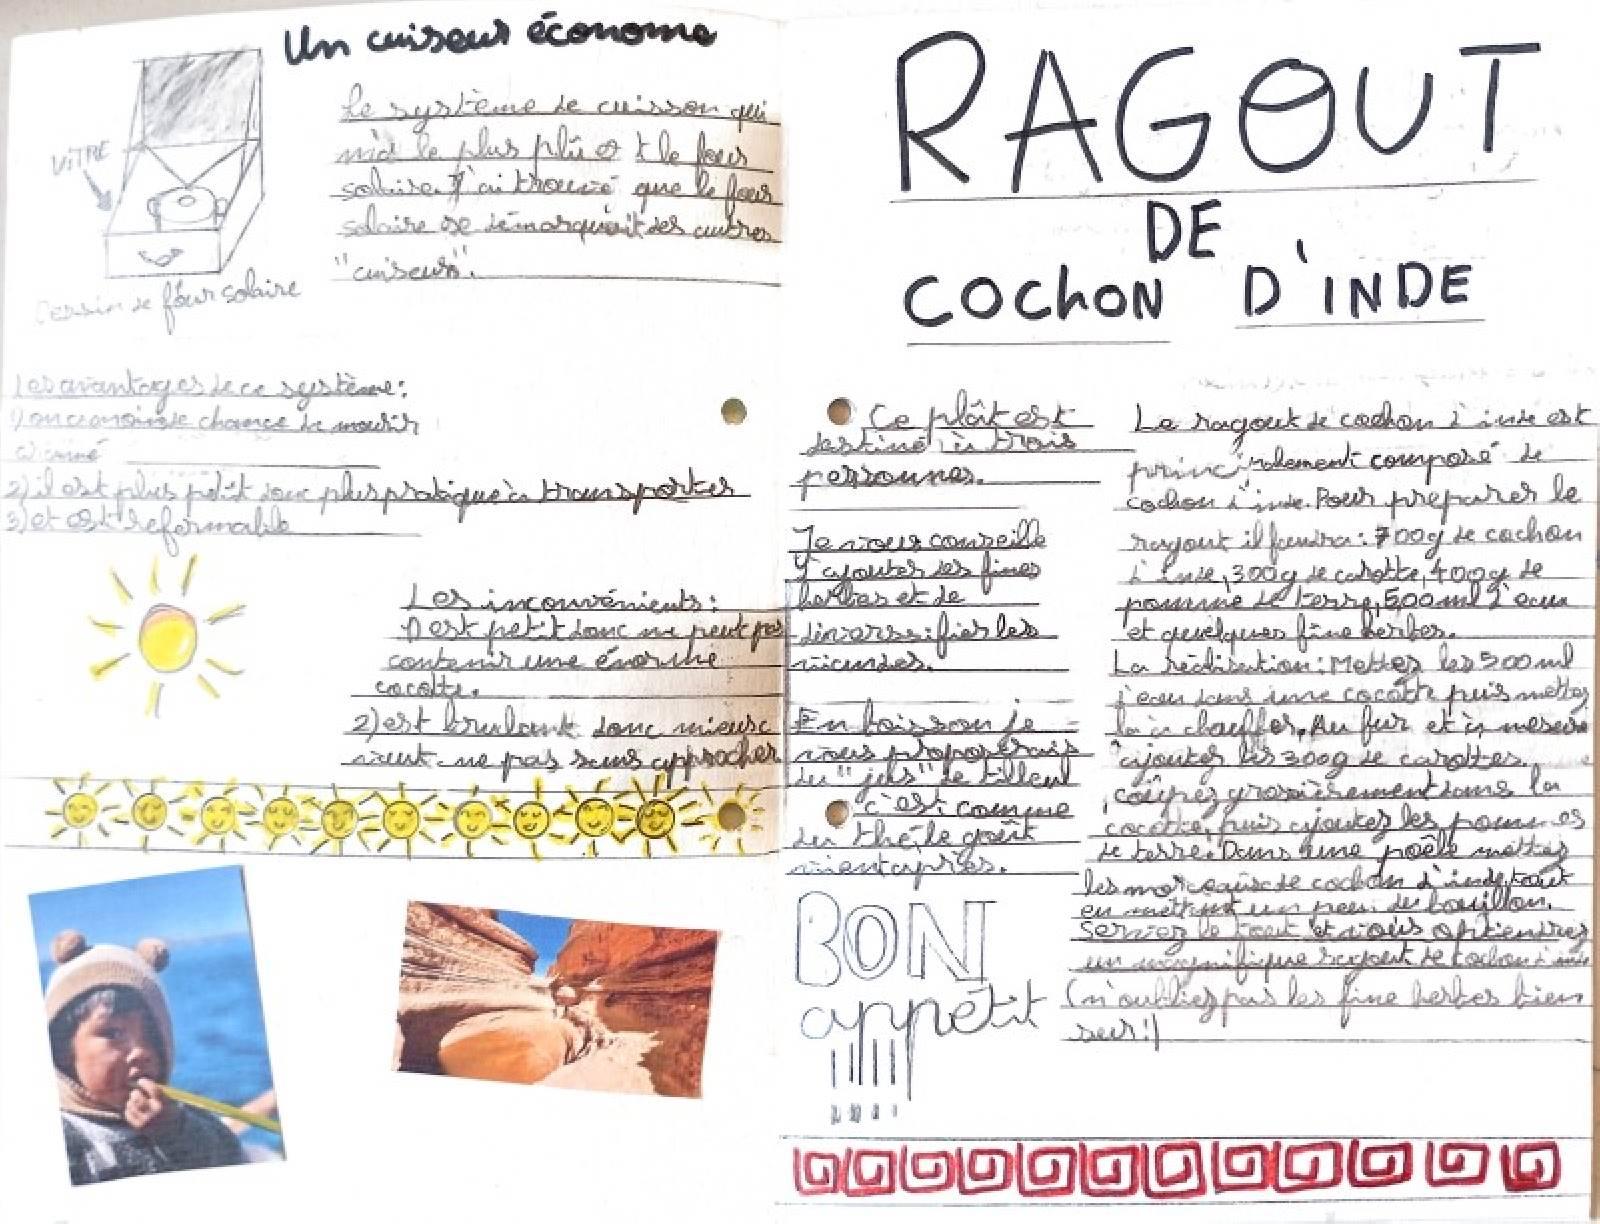 Un cuiseur économe
Le système de cuisson qui
m'a le plus plû est le four
solaire. J'ai trouvé que le four
solaire se démarquait des autres
"cuiseurs".
VITRE
Dessin de four solaire
Les avantages de ce système:
1) on a moins de chance de mourir
2) il est plus petit donc plus pratique à transporter
3) et est refermable
Les inconvénients:
1) est petit donc ne peut pas
contenir une énorme
cocotte.
2) est brulant donc mieux
vaut ne pas s'approcher
RAGOUT
DE
COCHON D'INDE
Ce plât est
destiné à trois
personnes.
Je vous conseille
d'ajouter des fines
herbes et de
diversifier les
viandes.
En boisson je
vous proposerais
du "jus" de tilleul
c'est comme
du thé, le goût
vient après.
BON
appétit
Le ragout de cochon d'inde est
principalement composé de
cochon d'inde. Pour preparer le
ragout il faudra: 700g de cochon
d'inde, 300g de carotte, 400g de
pomme de terre, 500ml d'eau
et quelques fine herbes.
La réalisation: Mettez les 500ml
d'eau dans une cocotte puis mettez
la à chauffer. Au fur et à mesure
ajoutez les 300g de carottes.
coupez grossièrement dans la
cocotte, puis ajoutez les pommes
de terre. Dans une poêle mettez
les morceaux de cochon d'inde, tout
en mettant un peu du bouillon.
Servez le tout et vous obtiendrez
un magnifique ragout de cochon d'inde
(n'oubliez pas les fine herbes bien
sur!)